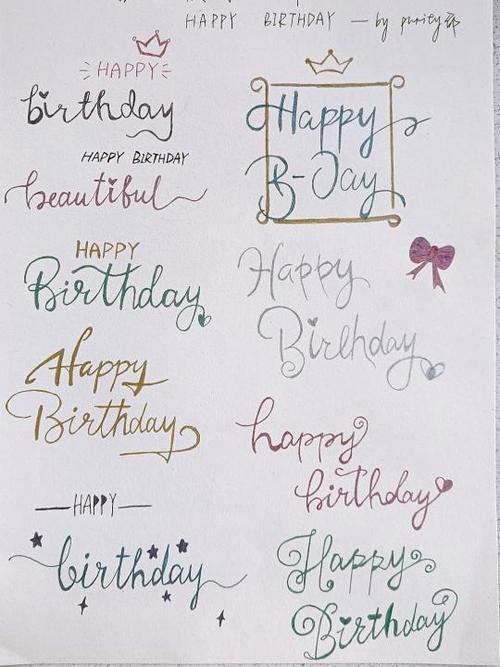 HAPPY BIRTHDAY — by purity
HAPPY
birthday
HAPPY BIRTHDAY
beautiful
HAPPY
Birthday
Happy
Birthday
—HAPPY—
birthday
Happy
B-Day
Happy
Birthday
happy
birthday
Happy
Birthday